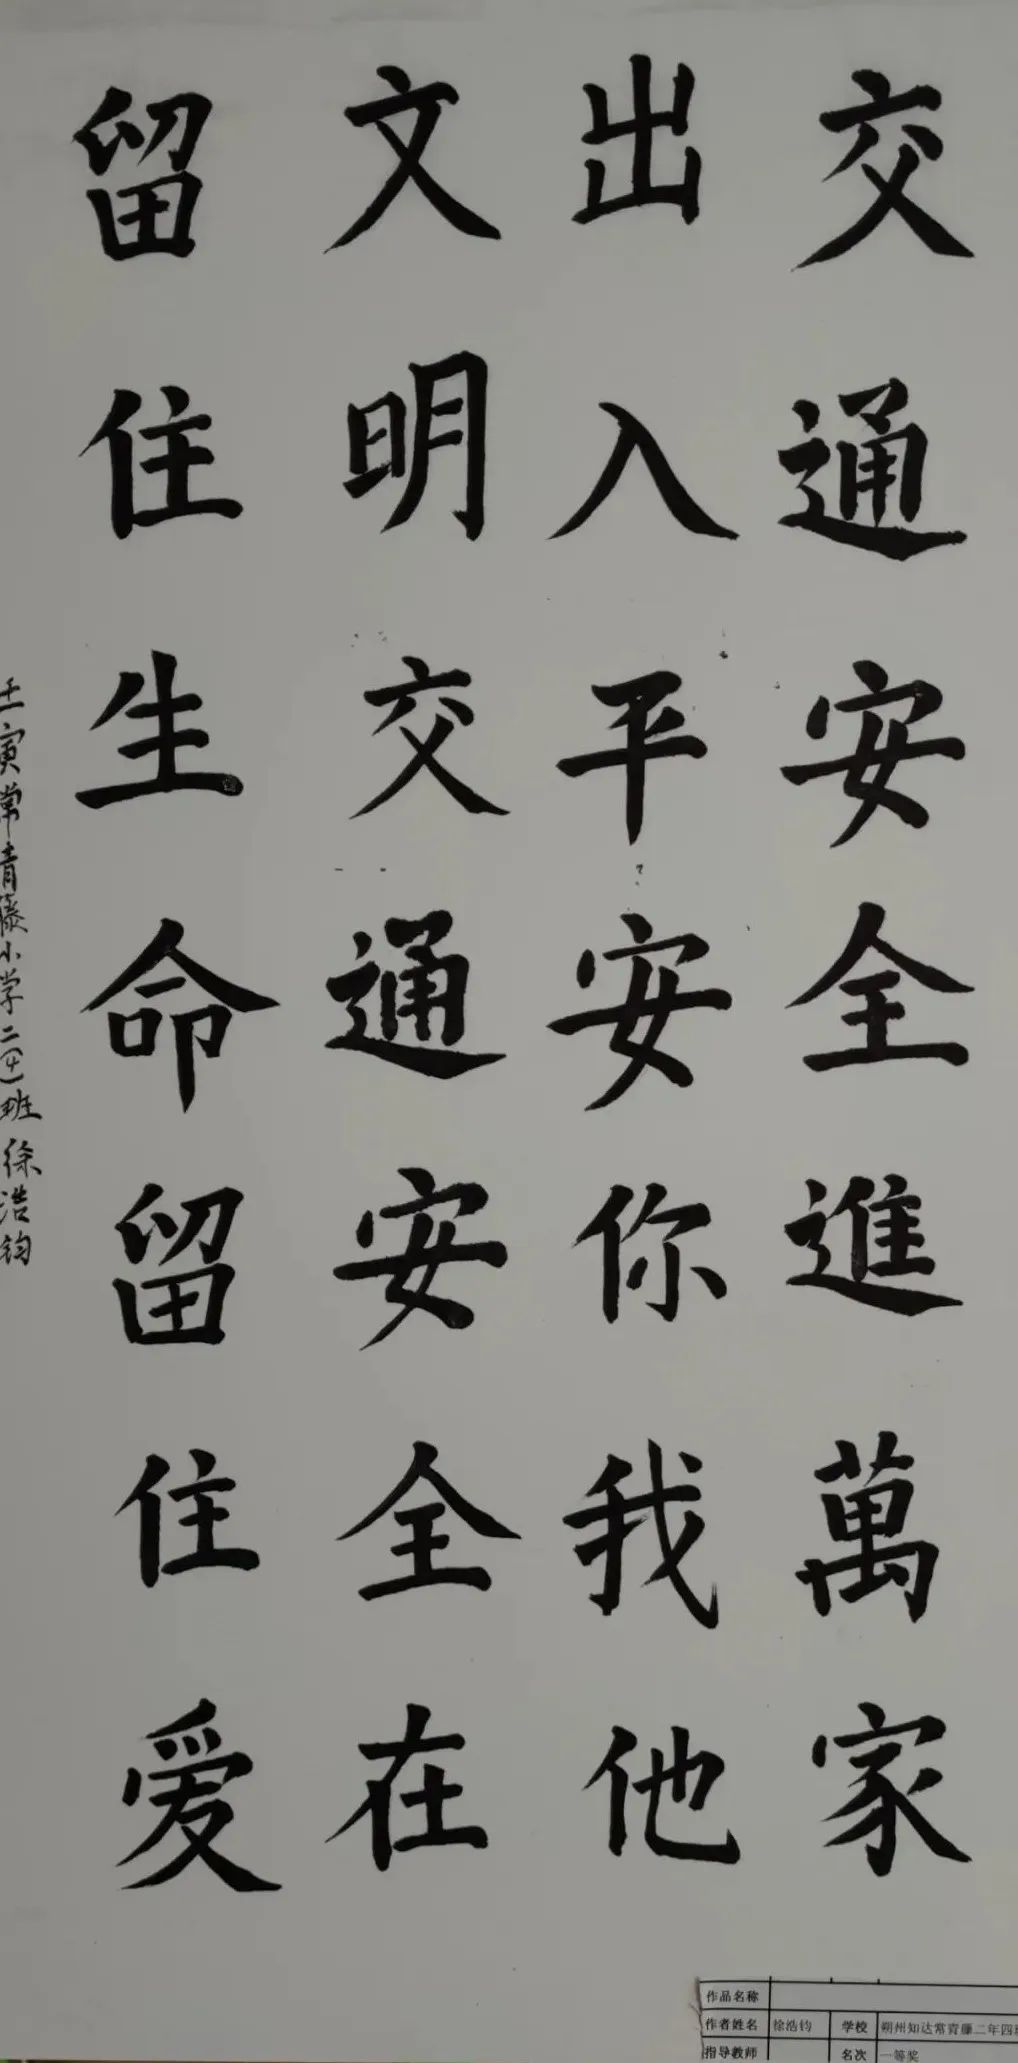 交通安全進萬家
出入平安你我他
文明交通安全在
留住生命留住爱
壬寅常青藤小学二(4)班徐浩钧
作品名称
作者姓名 徐浩钧 学校 朔州知达常青藤二年四班
指导教师 名次 一等奖